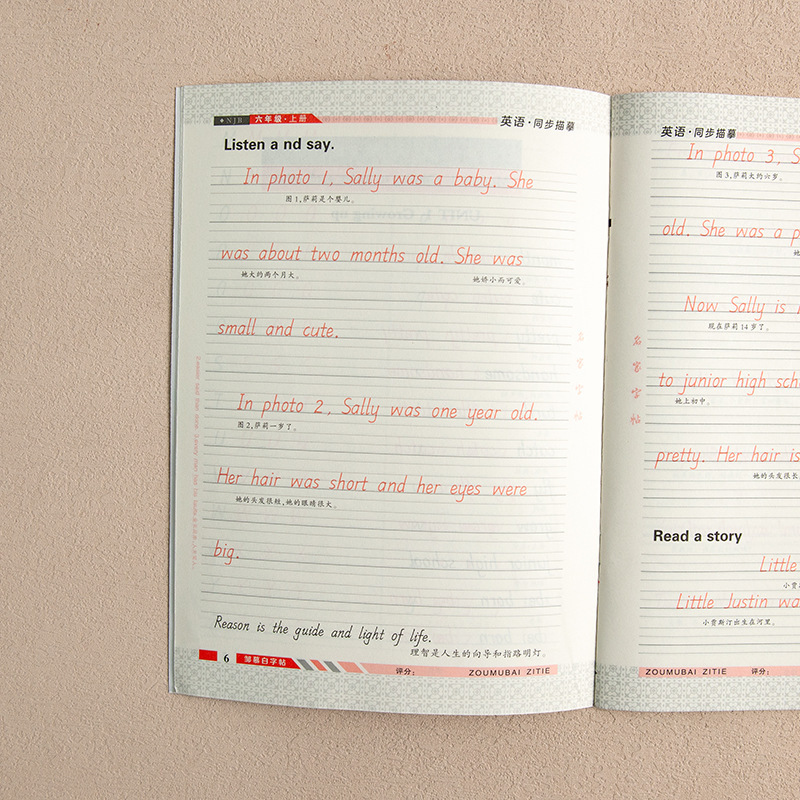 NJB 六年级·上册
英语·同步描摹
Listen a nd say.
In photo 1, Sally was a baby. She
图1,萨莉是个婴儿。
was about two months old. She was
她大约两个月大。 她娇小而可爱。
small and cute.
In photo 2, Sally was one year old.
图2,萨莉一岁了。
Her hair was short and her eyes were
她的头发很短,她的眼睛很大。
big.
Reason is the guide and light of life.
理智是人生的向导和指路明灯。
6 邹慕白字帖 评分: ZOUMUBAI ZITIE
名家字帖
英语·同步描摹
In photo 3, S
图3,萨莉大约六岁。
old. She was a p
她
Now Sally is
现在萨莉14岁了。
to junior high sch
她上初中。
pretty. Her hair is
她的头发很长
Read a story
Little
小贾
Little Justin wa
小贾斯汀出生在河里。
名家字帖
ZOUMUBAI ZITIE 评分: